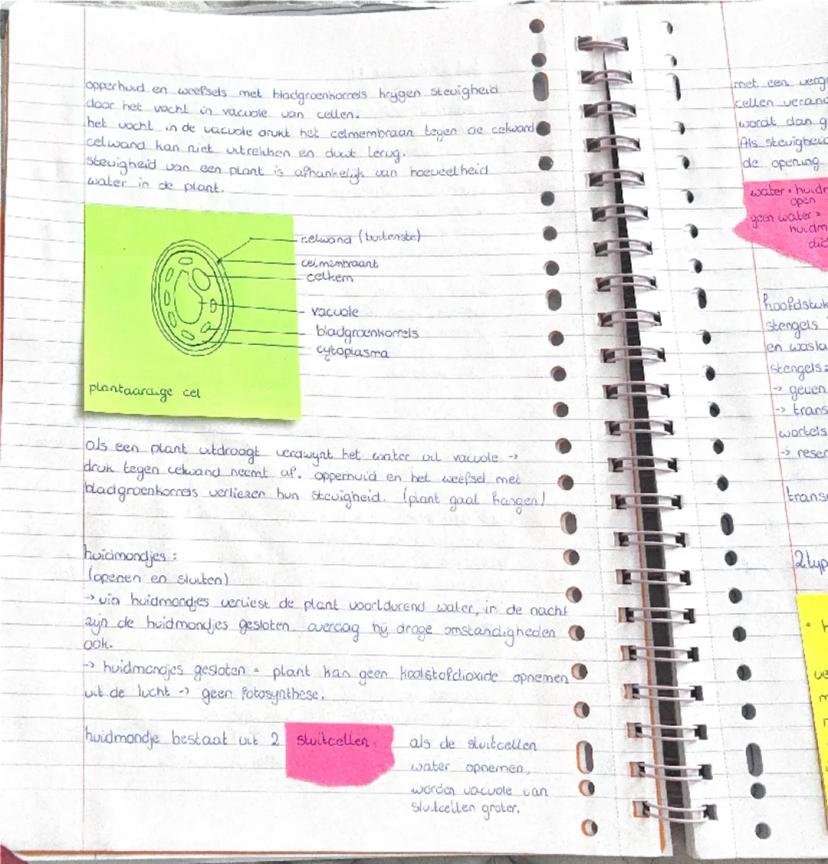 opperhuid en weefsels met bladgroenkorrels krijgen stevigheid
door het vocht in vacuole van cellen.
het vocht in de vacuole drukt het celmembraan tegen de celwand
celwand kan niet uitrekken en duwt terug.
stevigheid van een plant is afhankelijk van hoeveelheid
water in de plant.
celwand (buitenste)
celmembraant
celkern
vacuole
bladgroenkorrels
cytoplasma
plantaardige cel
als een plant uitdroogt verdwijnt het water uit vacuole ->
druk tegen celwand neemt af. opperhuid en het weefsel met
bladgroenkorrels verliezen hun stevigheid. (plant gaat hangen)
huidmondjes :
(openen en sluiten)
-> via huidmondjes verliest de plant voortdurend water, in de nacht
zijn de huidmondjes gesloten. overdag bij droge omstandigheden
ook.
-> huidmondjes gesloten = plant kan geen koolstofdioxide opnemen
uit de lucht -> geen fotosynthese.
huidmondje bestaat uit 2 sluitcellen.
als de sluitcellen
water opnemen,
worden vacuole van
sluitcellen groter.
met een
cellen
wordt dan
Als
de opening
water =
open
geen water =
stengels
en
stengels:
-> geven
->
wortels
->
2